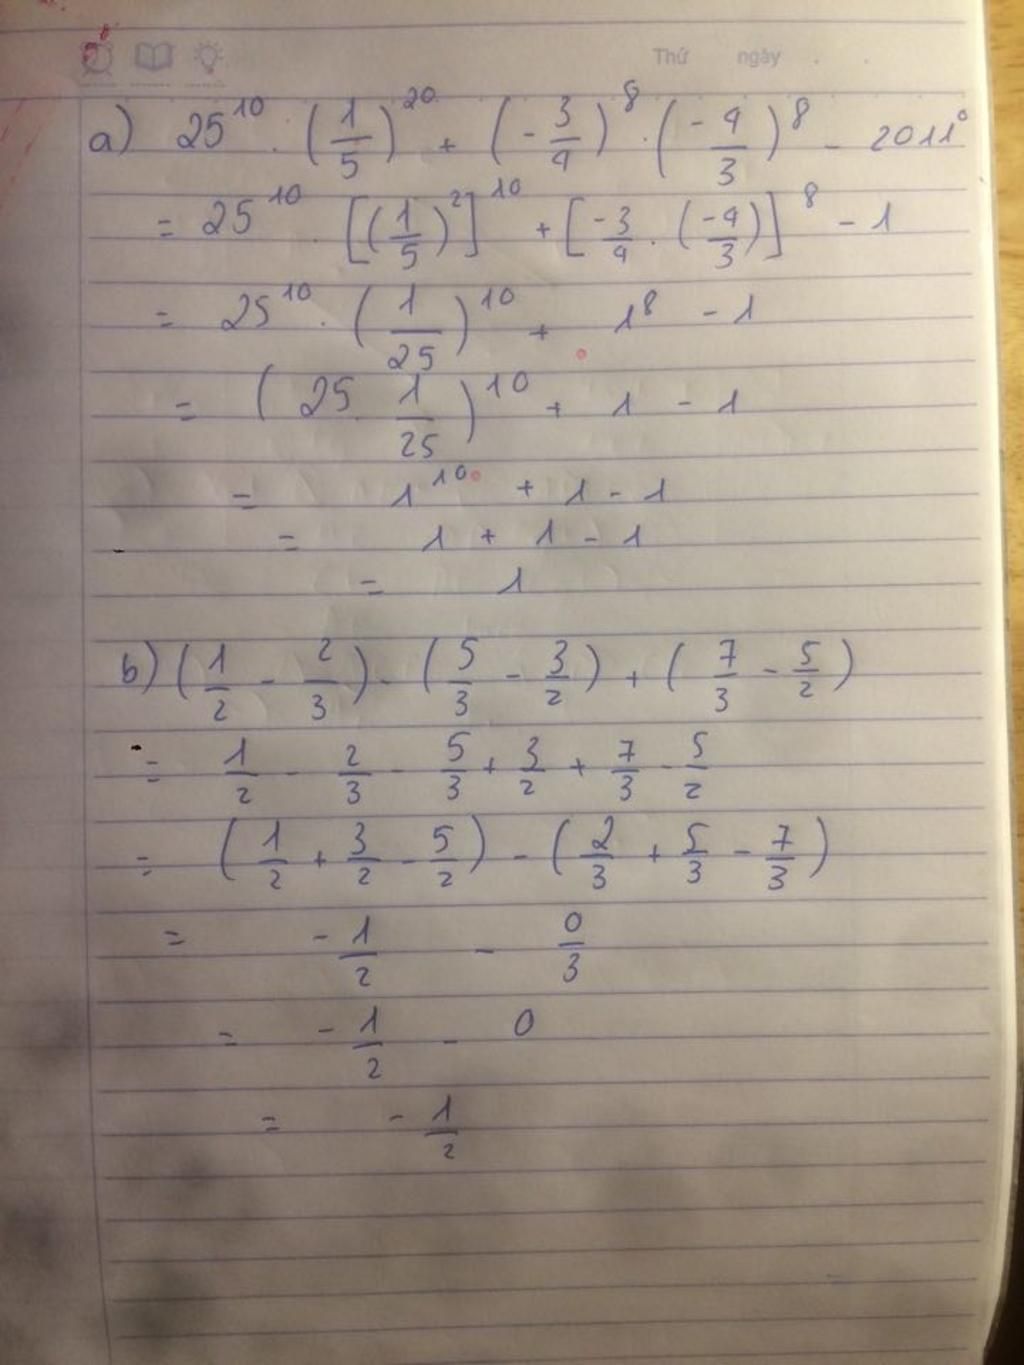 Thứ ngày
a) 25^10 . (1/5)^20 + (-3/4)^8 . (-4/3)^8 - 2011^0
= 25^10 . [(1/5)^2]^10 + [-3/4 . (-4/3)]^8 - 1
= 25^10 . (1/25)^10 + 1^8 - 1
= (25 . 1/25)^10 + 1 - 1
= 1^10 + 1 - 1
= 1 + 1 - 1
= 1
b) (1/2 - 2/3) - (5/3 - 3/2) + (7/3 - 5/2)
= 1/2 - 2/3 - 5/3 + 3/2 + 7/3 - 5/2
= (1/2 + 3/2 - 5/2) - (2/3 + 5/3 - 7/3)
= -1/2 - 0/3
= -1/2 - 0
= -1/2